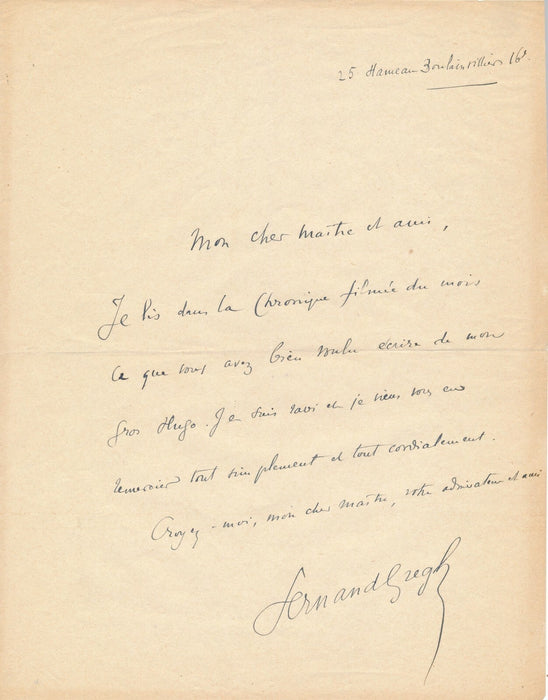 25 Hameau Boulainvilliers 16e
Mon cher maître et ami,
Je lis dans la Chronique filmée du mois
ce que vous avez bien voulu écrire de mon
gros Hugo. J'en suis ravi et je viens vous en
remercier tout simplement et tout cordialement.
Croyez-moi, mon cher maître, votre admirateur et ami
Fernand Gregh